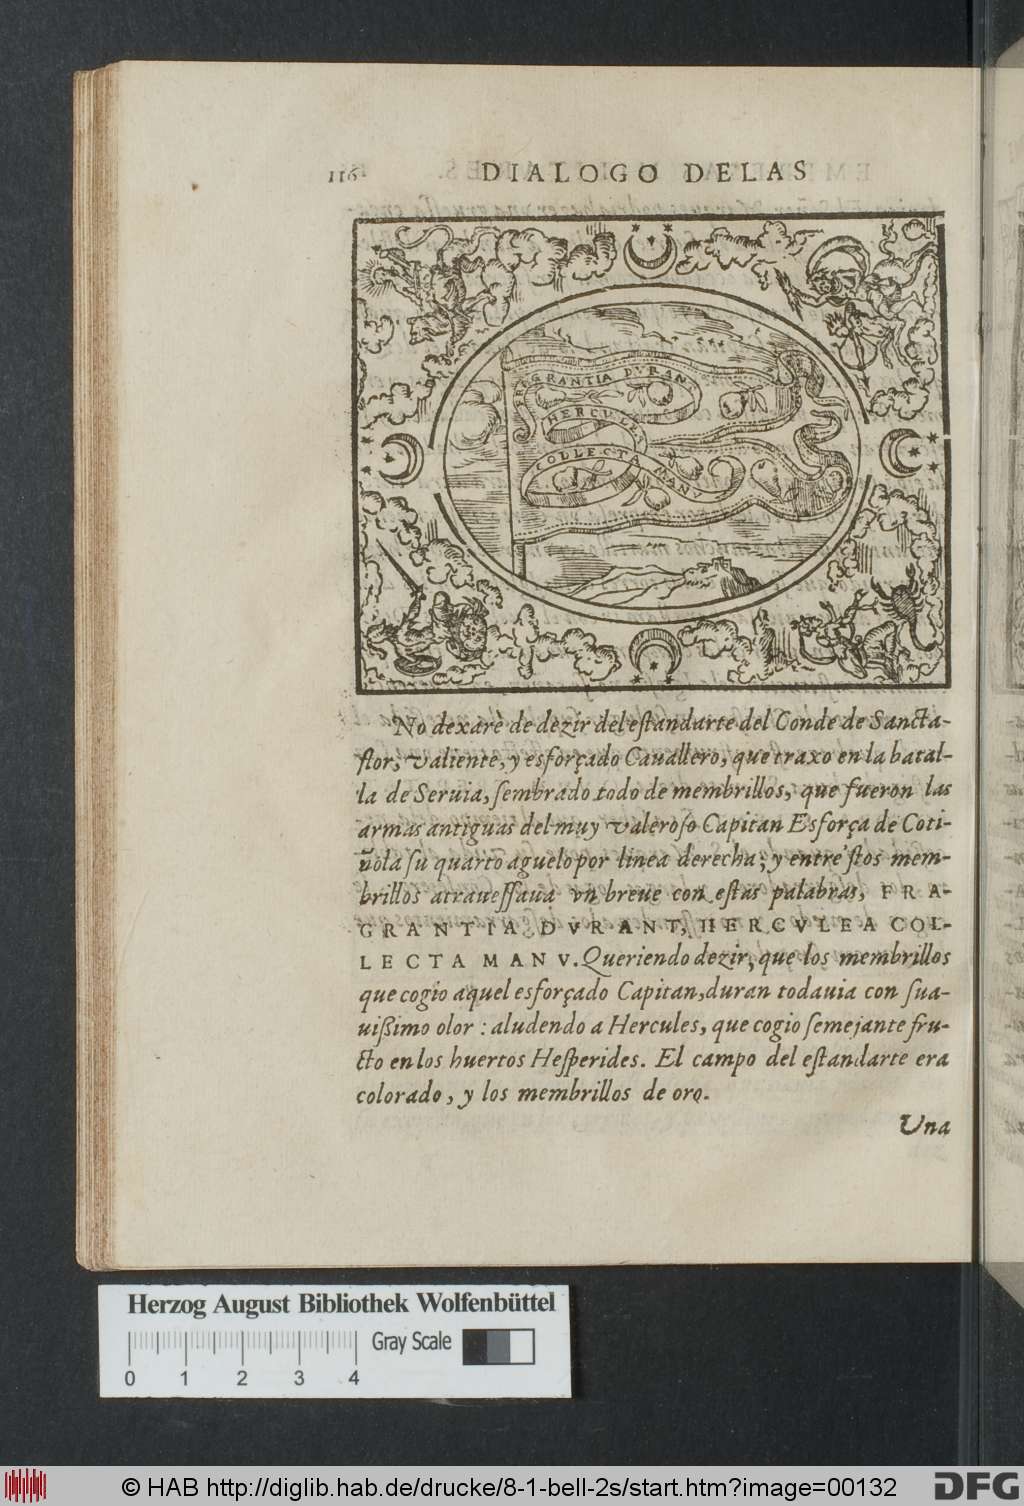 DIALOGO DELAS
FRAGRANTIA DVRANT
HERCVLEA
COLLECTA MANV
No dexarè de dezir del eſtandarte del Conde de Sancta-
flor, valiente, y esforçado Cauallero, que traxo en la batal-
la de Seruia, ſembrado todo de membrillos, que fueron las
armas antiguas del muy valeroſo Capitan Esforça de Coti-
ñola ſu quarto aguelo por linea derecha; y entre'ſtos mem-
brillos atraueſſaua vn breue con eſtas palabras, FRA-
GRANTIA DVRANT, HERCVLEA COL-
LECTA MANV. Queriendo dezir, que los membrillos
que cogio aquel esforçado Capitan, duran todauia con ſua-
uißimo olor : aludendo a Hercules, que cogio ſemejante fru-
cto en los huertos Heſperides. El campo del eſtandarte era
colorado, y los membrillos de oro.
Una
Herzog August Bibliothek Wolfenbüttel
Gray Scale
0 1 2 3 4
© HAB http://diglib.hab.de/drucke/8-1-bell-2s/start.htm?image=00132
DFG